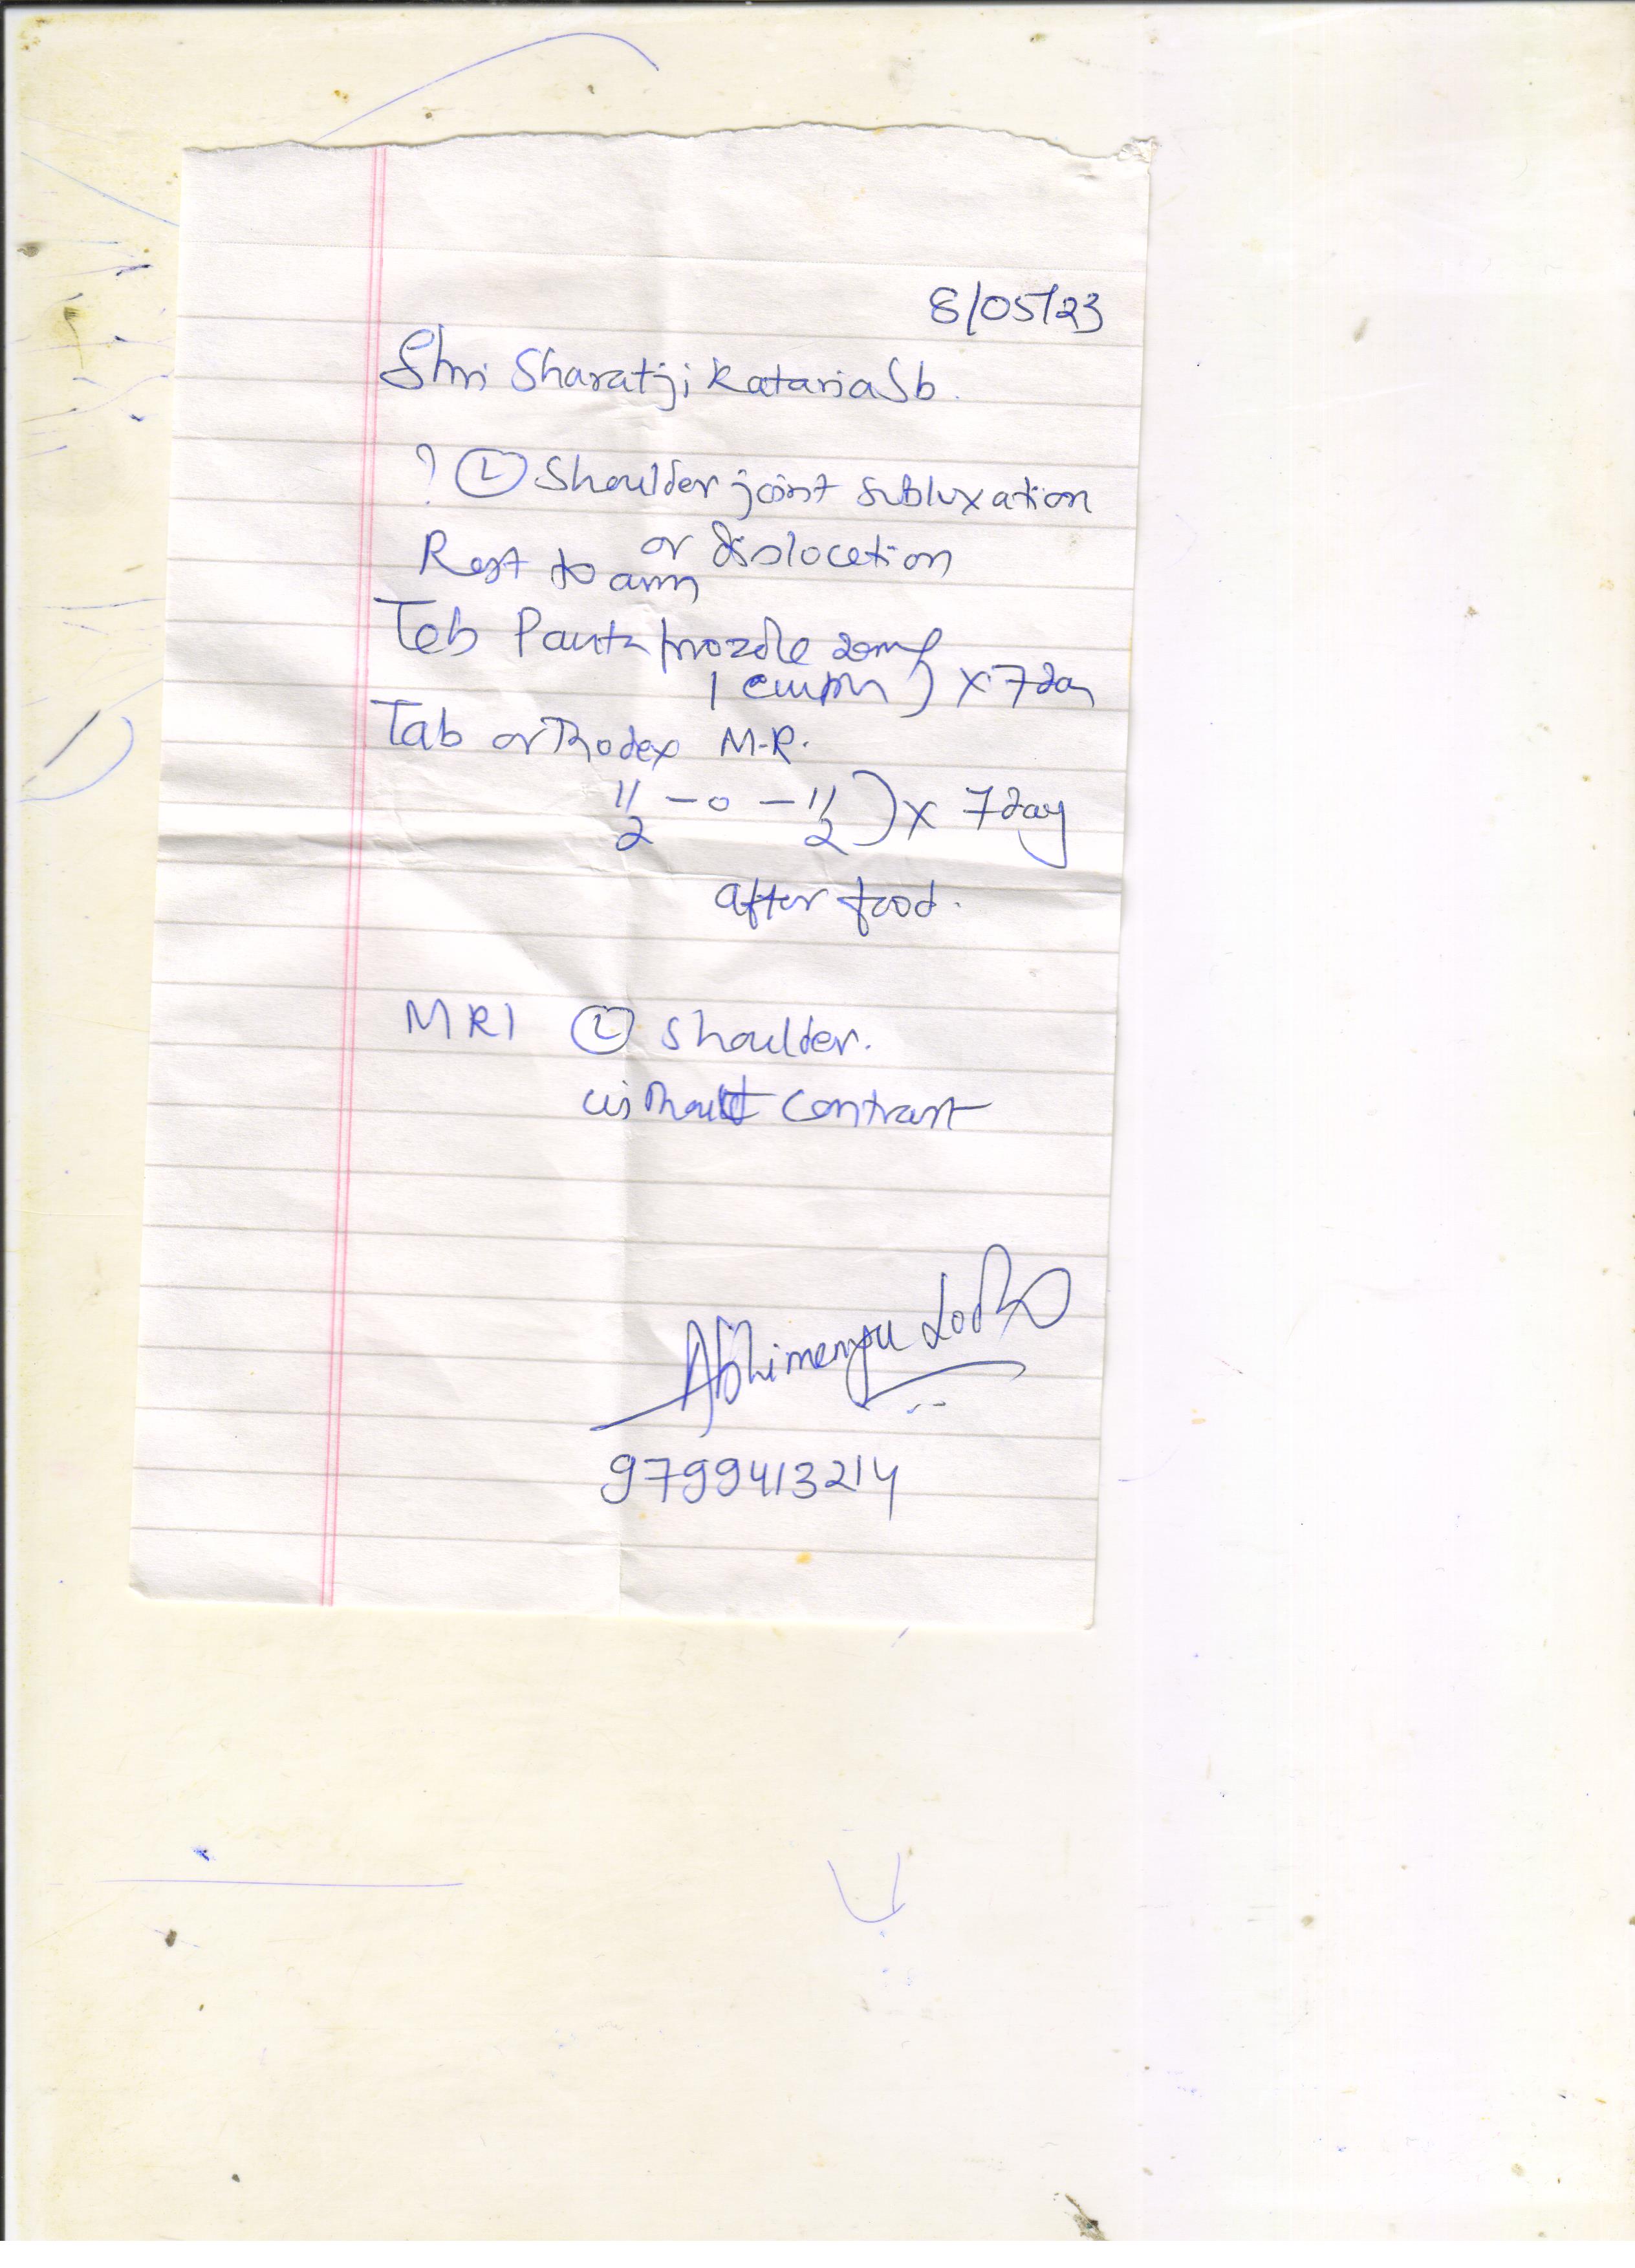 8/05/23
Shri Sharatji Kataria Sb.
? Ⓛ Shoulder joint subluxation
or dislocetion
Rest to arm
Teb Pantaprozole 20mg
1 empty ) x 7 day
Tab orthodex M.R.
1/2 - 0 - 1/2 ) x 7 day
after food.
MRI Ⓛ shoulder.
without contrast
Abhimanyu
9799413214